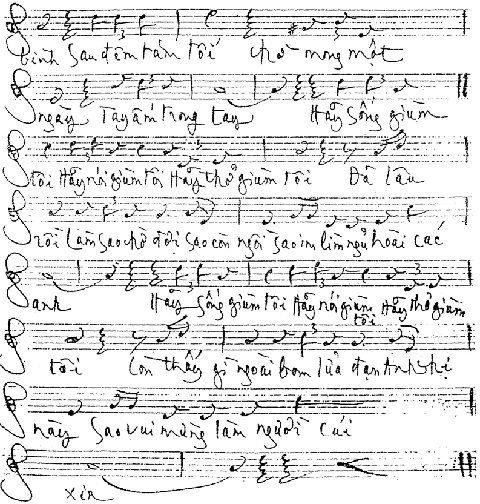 bình sau đêm tăm tối chờ mong một
ngày Tay ấm trong tay Hãy sống giùm
tôi Hãy nói giùm tôi Hãy thở giùm tôi Đã lâu
rồi làm sao chờ đợi sao còn ngồi sao im lìm ngủ hoài các
anh Hãy sống giùm tôi Hãy nói giùm tôi Hãy thở giùm
tôi Còn thấy gì ngoài bom lửa đạn Anh chị
này sao vui mừng làm người cúi
xin